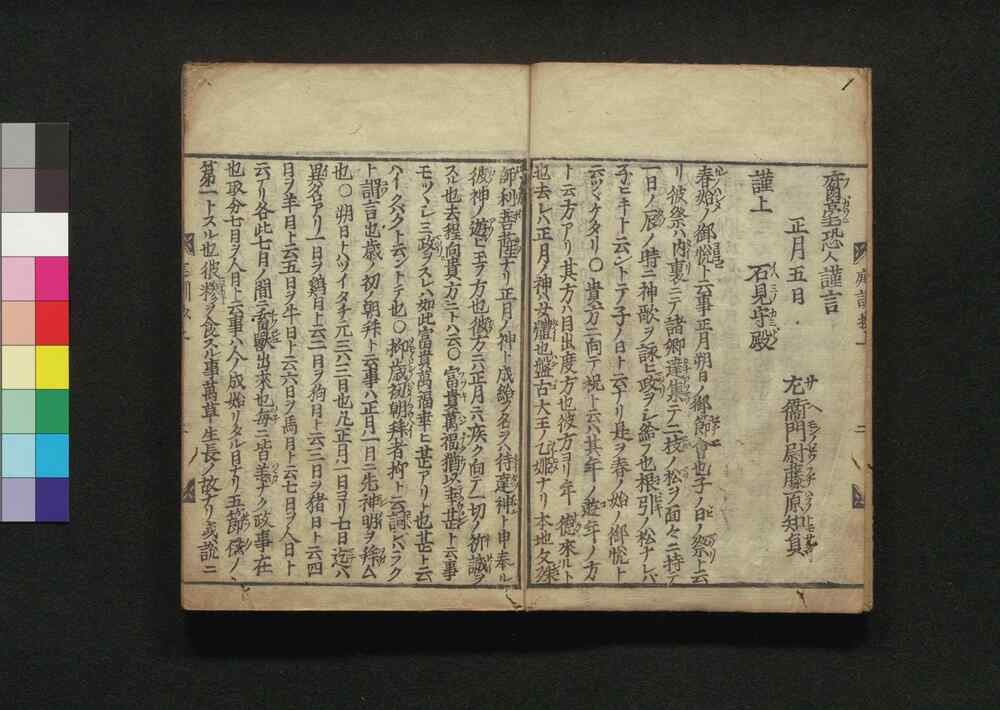 恐々謹言
正月五日 左衛門尉藤原知貞
謹上 石見守殿
春始ノ御悦ト云事正月朔日ノ御節會也子ノ日ノ祭ト云
リ彼祭ハ内裏ニテ諸卿達集テ二枝ノ松ヲ面々ニ持テ
一日ノ辰ノ時ニ神歌ヲ詠ヒ政ヲシ給フ也根引ノ松ナレバ
子ヒキト云ントテ子ノ日ト云ナリ是ヲ春ノ始ノ御悦ト
云ツヾケタリ〇貴方ニ向テ祝ト云ハ其年ノ惠年ノ方
ト云方アリ其方ハ目出度方也彼方ヨリ年ノ徳來ルト
也去レバ正月ノ神ハ女體也盤古大王ノ乙姫ナリ本地文殊
師利菩薩ナリ正月ノ神ト成給ノ名ヲハ待達神ト申奉ル
彼神ノ遊ビ玉フ方也彼方ニ正月ニハ疾ク向テ一切ノ祈誠ヲ
スル也去程向貴方ニトハ云〇富貴萬福猶以幸甚ト云事
モツハレニ政ヲスレハ如此富貴萬福幸ヒ甚アリト也甚ト云
ハイクバクト云ントテ也〇抑歳初朝拜者抑ト云詞ハバラク
ト謂言也歳ノ初ノ朝拜ト云事ハ正月一日ニ先神明ヲ拜ム
也〇朔日トハツイタチ元三六三日也凡正月一日ヨリ七日迄八
異名アリ一日ヲ鷄日ト云二日ヲ狗日ト云三日ヲ猪日ト云四
日ヲ羊日ト云五日ヲ牛日ト云六日ヲ馬日ト云七日ヲ人日ト
云ナリ各此七日ノ間ニ畜獸出來也毎ニ皆羊ノ政事在
也取分七日ヲ人日ト云事ハ人ノ成始リタル日ナリ五節供ノ
第一トスル也彼粥ヲ食スル事萬草ノ生長ノ故ナリ或説ニ